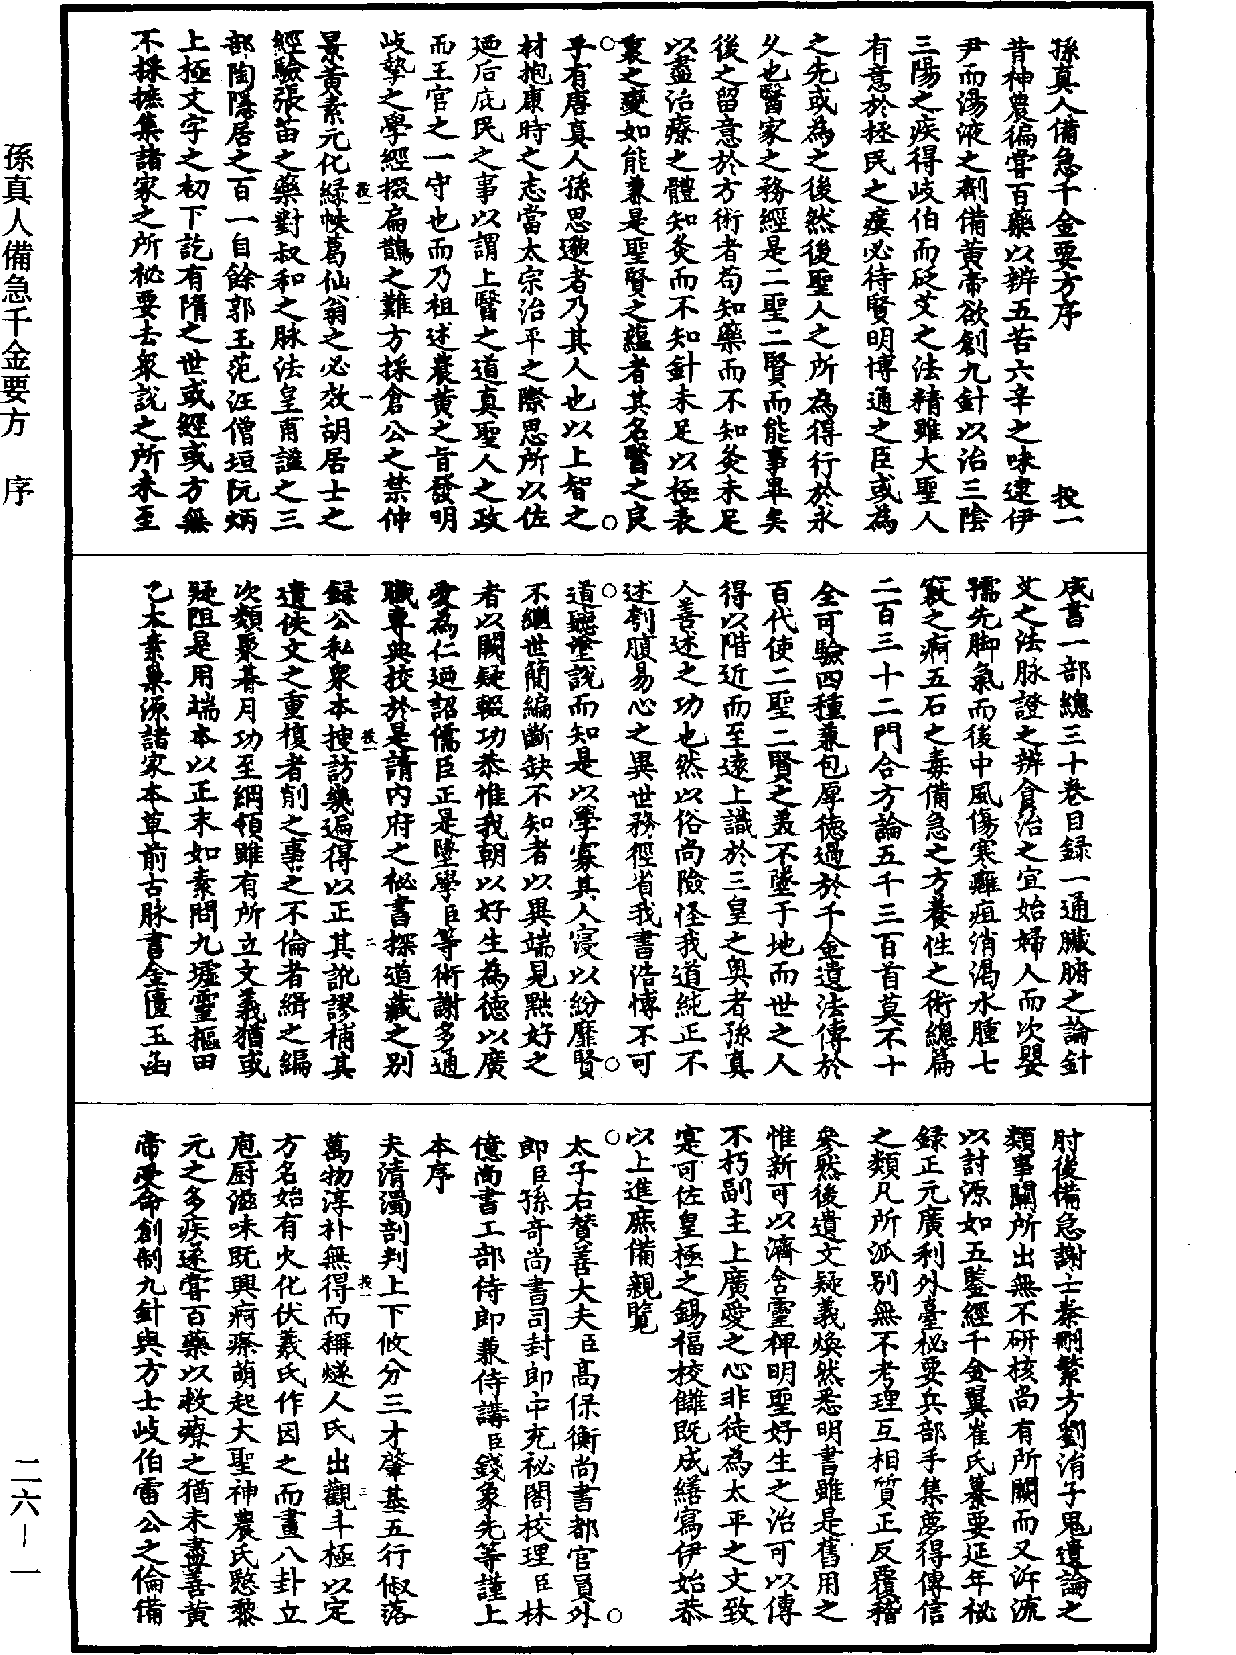 孫真人備急千金要方序　投一
昔神農徧嘗百藥以辨五苦六辛之味逮伊
尹而湯液之劑備黃帝欲創九針以治三陰
三陽之疾得岐伯而砭艾之法精雖大聖人
有意於拯民之瘼必待賢明博通之臣或為
之先或為之後然後聖人之所為得行於永
久也醫家之務經是二聖二賢而能事畢矣
後之留意於方術者苟知藥而不知灸未足
以盡治療之體知灸而不知針未足以極表
裏之變如能兼是聖賢之蘊者其名醫之良
乎有唐真人孫思邈者乃其人也以上智之
材抱康時之志當太宗治平之際思所以佐
廼后庇民之事以謂上醫之道真聖人之政
而王官之一守也而乃祖述農黃之旨發明
岐摯之學經掇扁鵲之難方採倉公之禁仲
景黃素元化緑帙葛仙翁之必效胡居士之
經驗張苗之藥對叔和之脉法皇甫謐之三
部陶隱居之百一自餘郭玉范汪僧垣阮炳
上極文字之初下訖有隋之世或經或方無
不採摭集諸家之所祕要去衆說之所未至
成書一部總三十卷目録一通臟腑之論針
艾之法脉證之辨食治之宜始婦人而次嬰
孺先脚氣而後中風傷寒癰疽消渴水腫七
竅之痾五石之毒備急之方養性之術總篇
二百三十二門合方論五千三百首莫不十
全可驗四種兼包厚德過於千金遺法傳於
百代使二聖二賢之美不墜于地而世之人
得以階近而至遠上識於三皇之奥者孫真
人善述之功也然以俗尚險怪我道純正不
述刳腹易心之異世務徑省我書浩博不可
道聽塗說而知是以學寡其人寖以紛靡賢
不繼世簡編斷缺不知者以異端見黜好之
者以闕疑輟功恭惟我朝以好生為德以廣
愛為仁廼詔儒臣正是墜學臣等術謝多通
職專典校於是請内府之秘書探道藏之别
録公私衆本搜訪幾遍得以正其訛謬補其
遺佚文之重複者削之事之不倫者緝之編
次類聚朞月功至綱領雖有所立文義猶或
疑阻是用端本以正末如素問九墟靈樞甲
乙太素巢源諸家本草前古脉書金匱玉函
肘後備急謝士秦刪繁方劉涓子鬼遺論之
類事關所出無不研核尚有所闕而又泝流
以討源如五鑒經千金翼崔氏纂要延年秘
録正元廣利外臺秘要兵部手集夢得傳信
之類凡所派别無不考理互相質正反覆稽
參然後遺文疑義煥然悉明書雖是舊用之
惟新可以濟含靈裨明聖好生之治可以傳
不朽副主上廣愛之心非徒為太平之文致
寔可佐皇極之錫福校讎既成繕寫伊始恭
以上進庶備親覽
太子右贊善大夫臣高保衡尚書都官員外
郎臣孫奇尚書司封郎中充祕閣校理臣林
億尚書工部侍郎兼侍講臣錢象先等謹上
本序
夫清濁剖判上下攸分三才肇基五行俶落
萬物淳朴無得而稱燧人氏出觀斗極以定
方名始有火化伏羲氏作因之而畫八卦立
庖厨滋味既興痾瘵萌起大聖神農氏愍黎
元之多疾遂嘗百藥以救療之猶未盡善黃
帝受命創制九針與方士岐伯雷公之倫備
投一　一
投一　二
投一　三
孫真人備急千金要方　序
二六—一